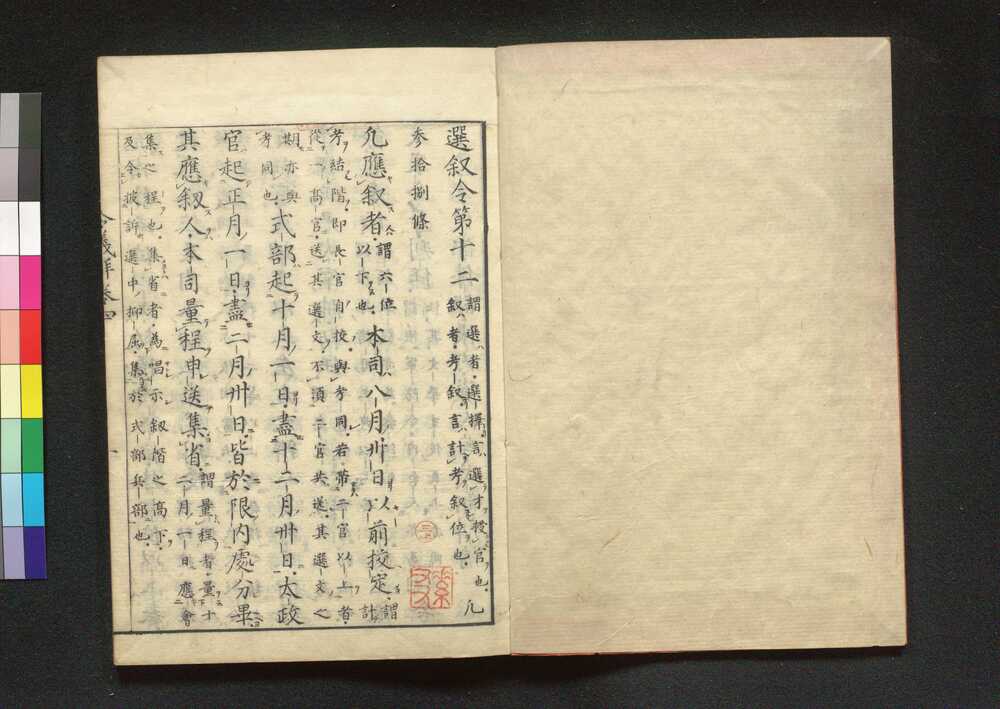 選叙令第十二 謂選者選擇言選才授官也 叙者考叙言計考叙位也 凡
参拾捌條
凡應叙者 謂六位以下也 本司八月卅日以前挍定 謂計
考結階即長官自挍與考同若帯二官以上者
從一高官送其選文不須二官共送其選文之
期亦與考同也 式部起十月一日盡十二月卅日太政
官起正月一日盡二月卅日皆於限内處分畢
其應叙人本司量程申送集省 謂量程者量十二月一日應會
集之程也集省者為唱示叙階之高下
及令披訴選中抑屈集於式部兵部也
令義解巻四